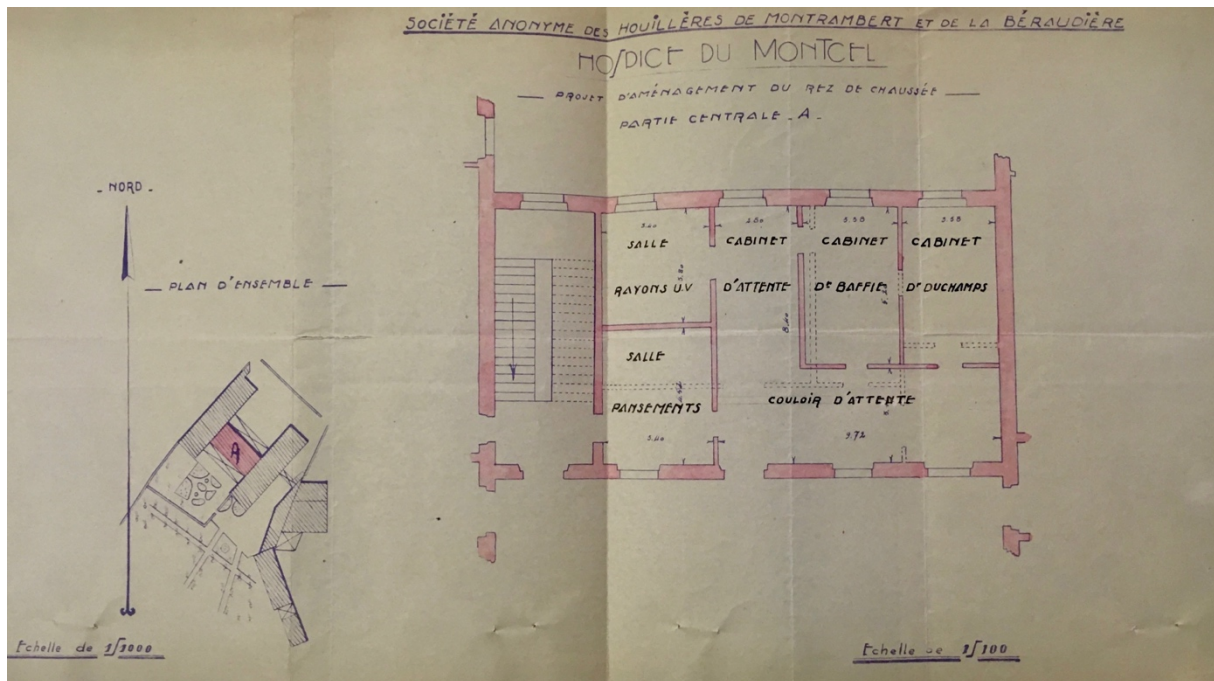 SOCIÉTÉ ANONYME DES HOUILLÈRES DE MONTRAMBERT ET DE LA BÉRAUDIÈRE
HOSPICE DU MONTCEL
PROJET D'AMÉNAGEMENT DU REZ DE CHAUSSÉE
PARTIE CENTRALE - A -
- NORD -
PLAN D'ENSEMBLE
A
Echelle de 1/1000
2.80
3.38
SALLE
RAYONS U.V
CABINET
D'ATTENTE
CABINET
Dr BAFFIE
CABINET
Dr DUCHAMPS
SALLE
PANSEMENTS
COULOIR D'ATTENTE
3.40
9.72
Echelle de 1/100